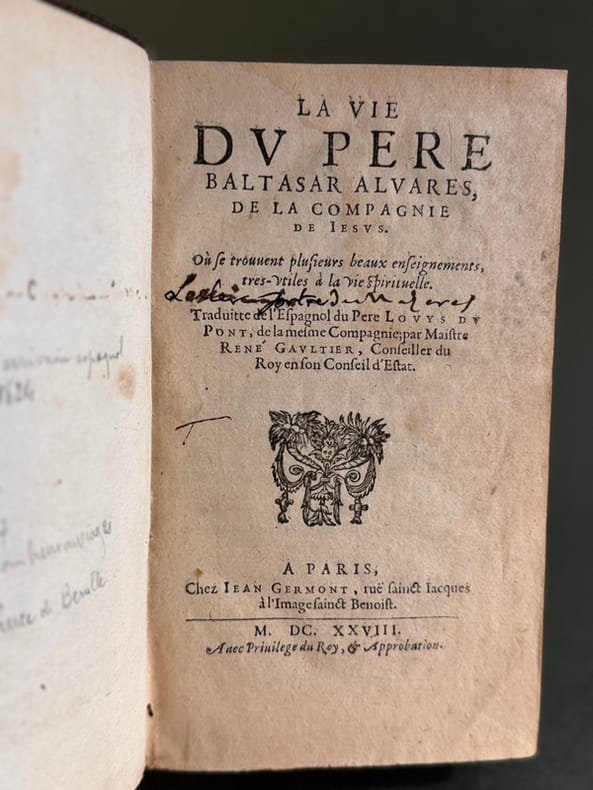 LA VIE
DV PERE
BALTASAR ALVARES,
DE LA COMPAGNIE
DE IESVS.
Où ſe trouuent pluſieurs beaux enſeignements,
tres-vtiles à la vie ſpirituelle.
Traduitte de l'Eſpagnol du Pere LOVYS DV
PONT, de la meſme Compagnie, par Maiſtre
RENÉ GAVLTIER, Conſeiller du
Roy en ſon Conſeil d'Eſtat.
A PARIS,
Chez IEAN GERMONT, ruë ſainct Iacques
à l'Image ſainct Benoiſt.
M. DC. XXVIII.
Auec Priuilege du Roy, & Approbation.
espagnol
1624
de Berulle